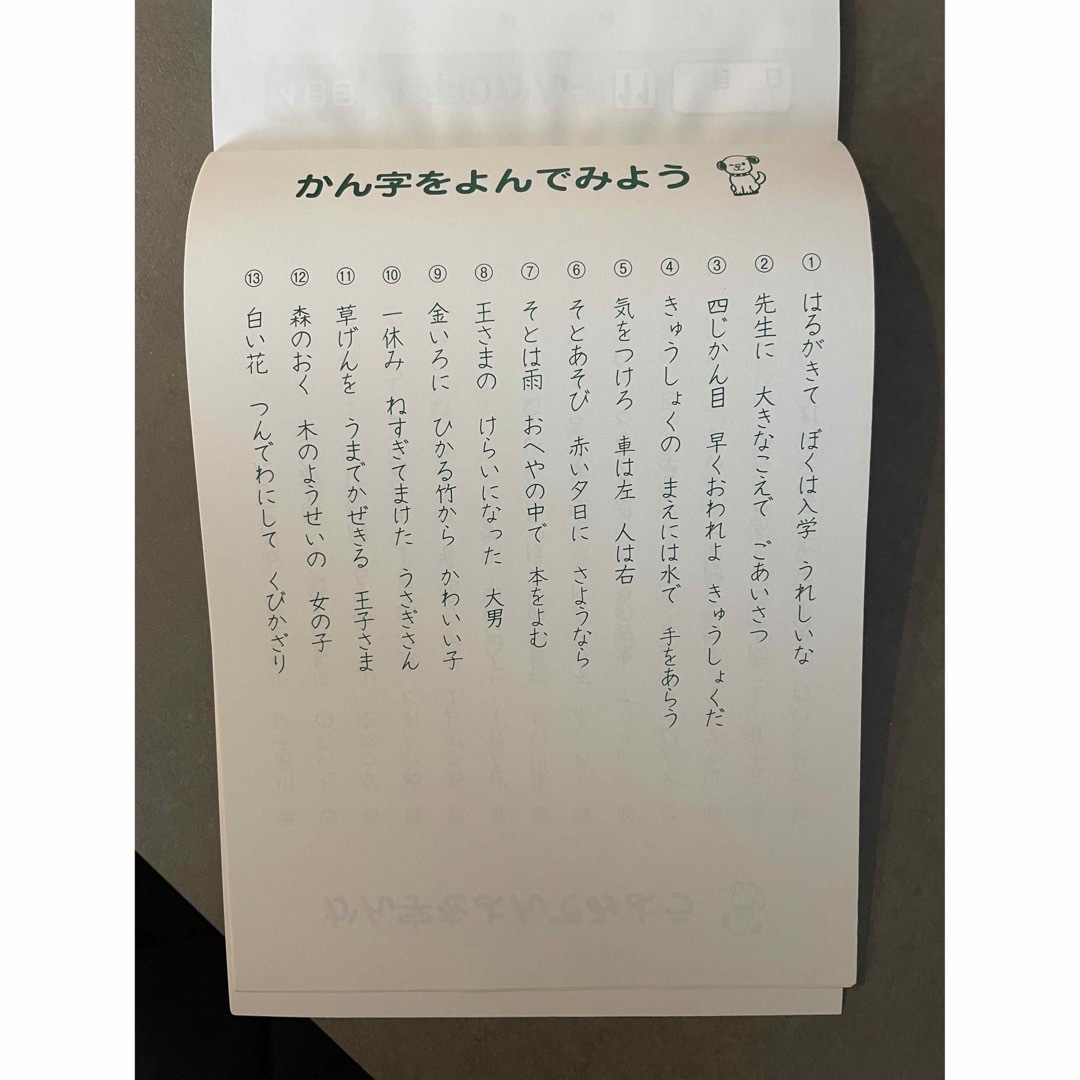 かん字をよんでみよう
① はるがきて ぼくは入学 うれしいな
② 先生に 大きなこえで ごあいさつ
③ 四じかん目 早くおわれよ きゅうしょくだ
④ きゅうしょくの まえには水で 手をあらう
⑤ 気をつけろ 車は左 人は右
⑥ そとあそび 赤い夕日に さようなら
⑦ そとは雨 おへやの中で 本をよむ
⑧ 王さまの けらいになった 大男
⑨ 金いろに ひかる竹から かわいい子
⑩ 一休み ねすぎてまけた うさぎさん
⑪ 草げんを うまでかぜきる 王子さま
⑫ 森のおく 木のようせいの 女の子
⑬ 白い花 つんでわにして くびかざり